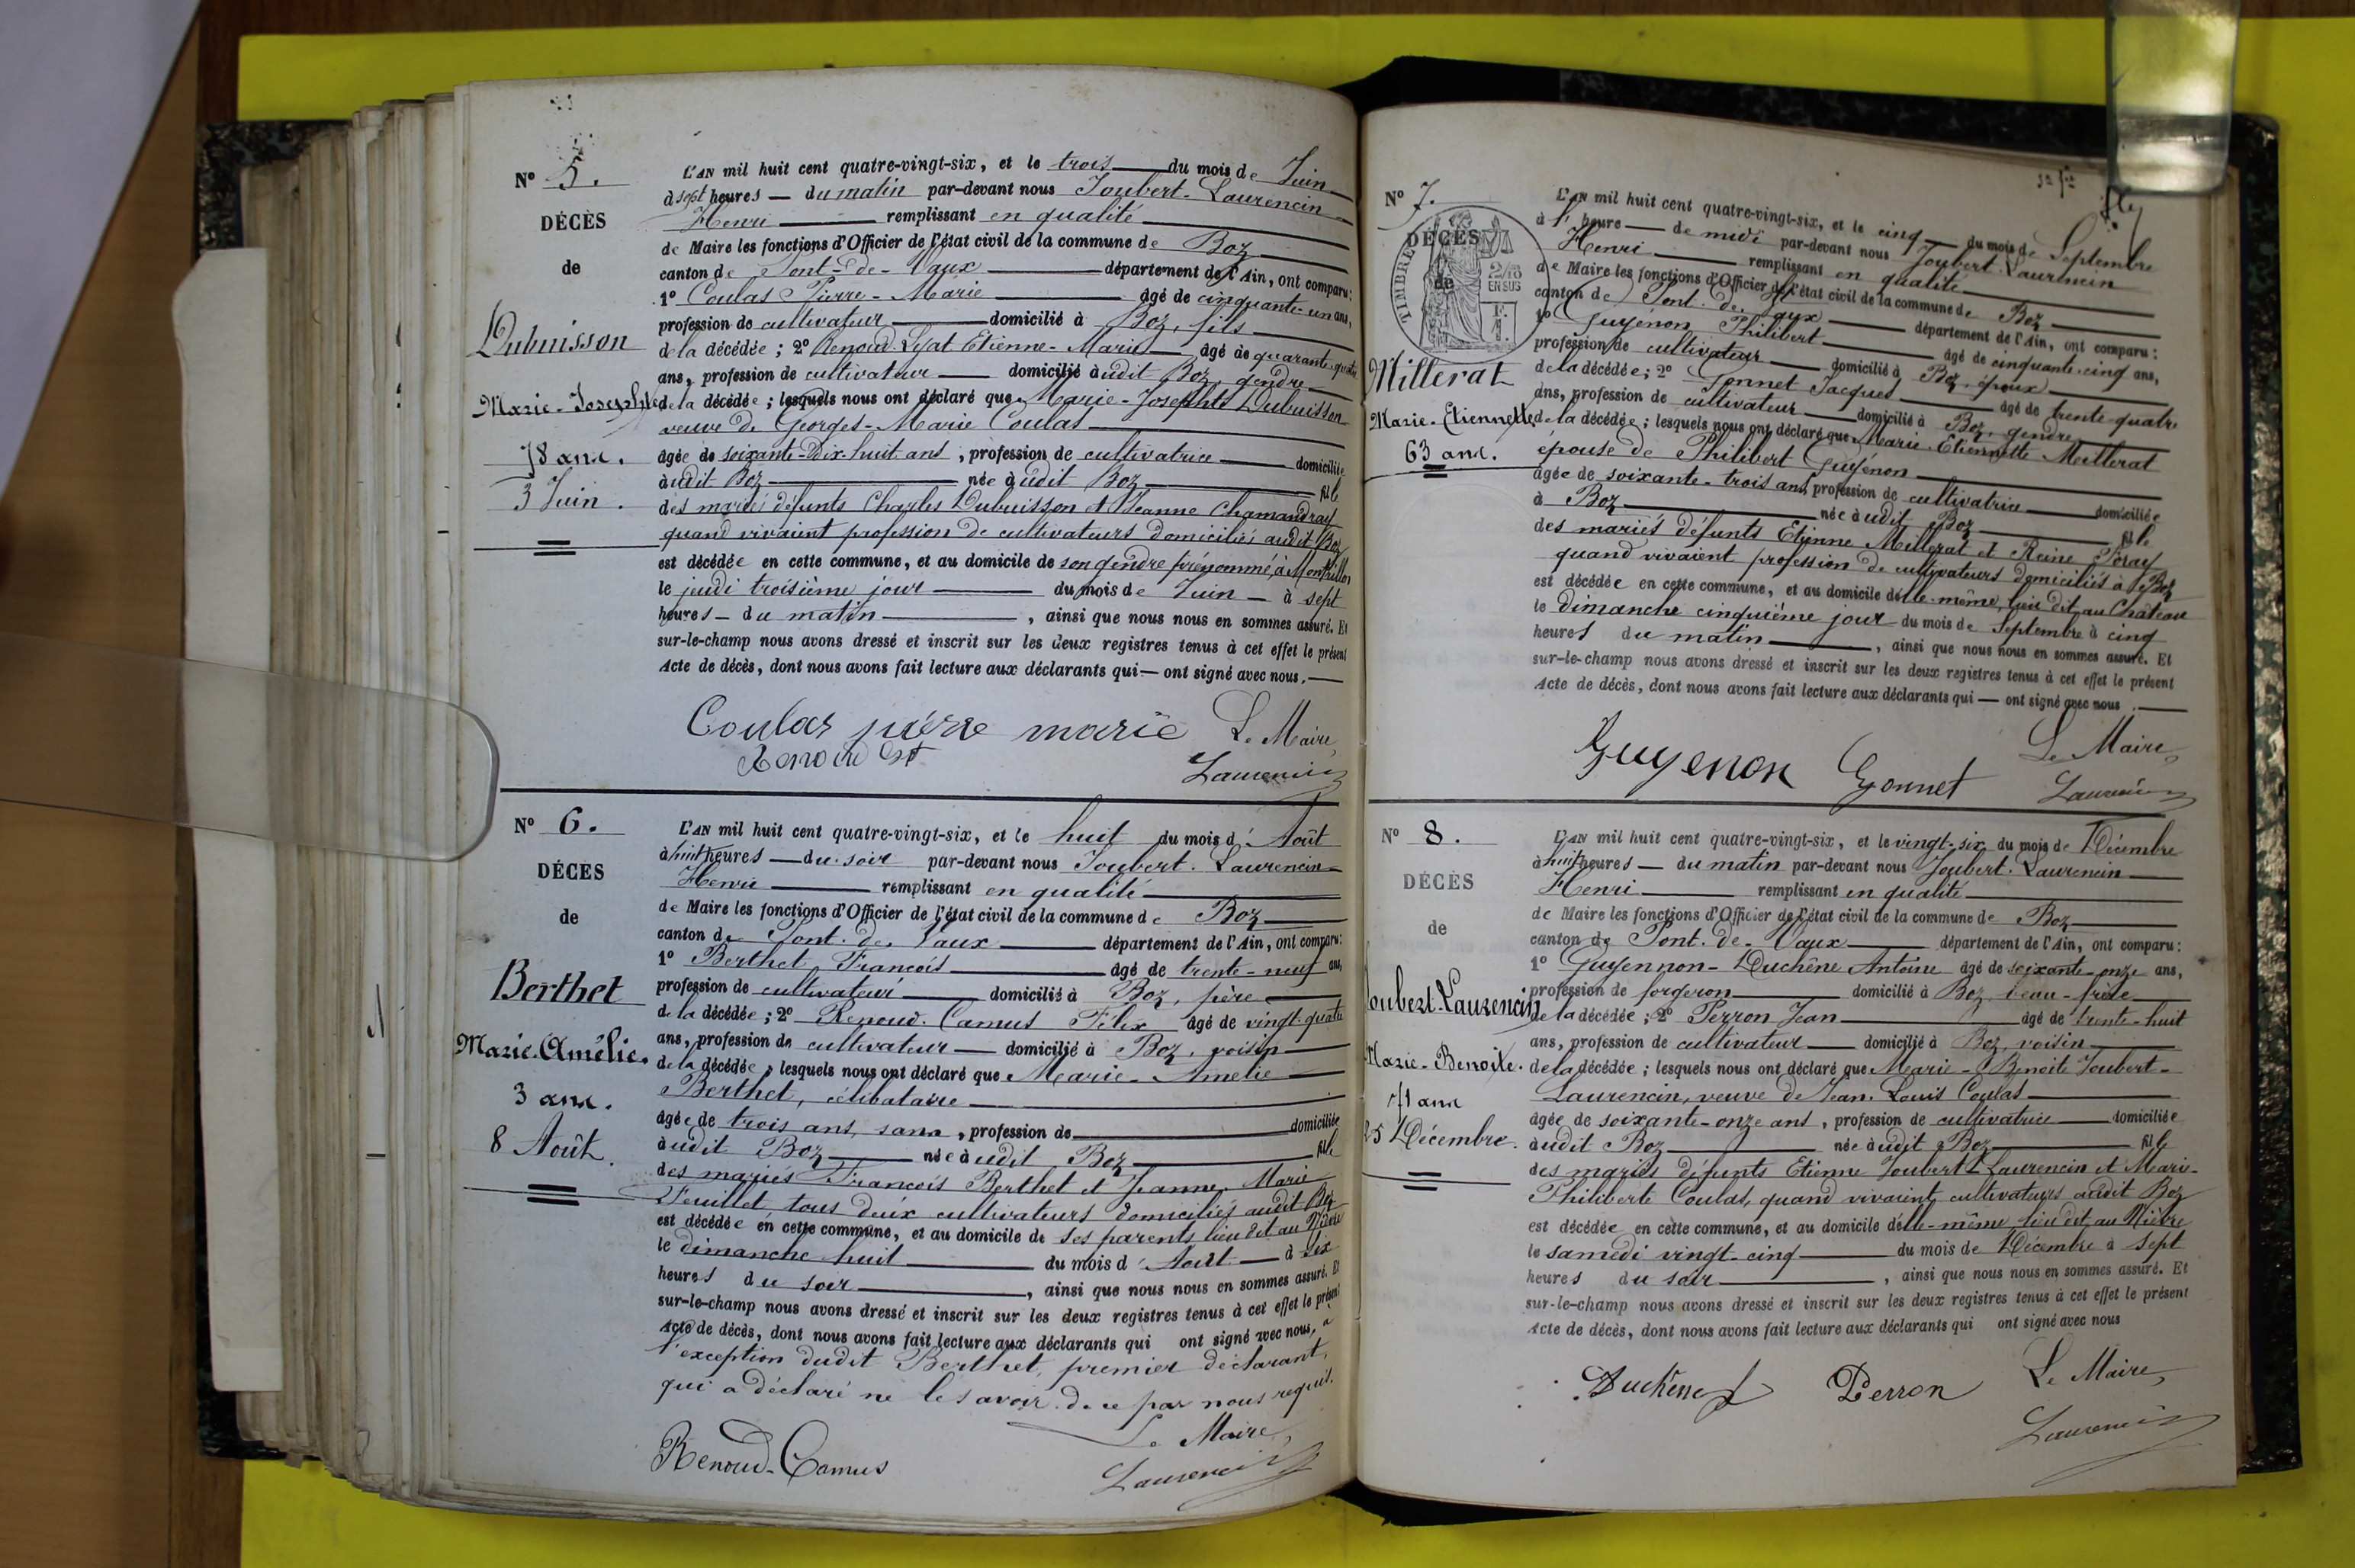 N° 5.
DÉCÈS
de
Dubuisson
Marie-Josephte
78 ans.
3 Juin.
L'AN mil huit cent quatre-vingt-six, et le trois du mois de Juin
à sept heures — du matin par-devant nous Joubert-Laurencin
Henri remplissant en qualité
de Maire les fonctions d'Officier de l'état civil de la commune de Boz
canton de Pont-de-Vaux département de l'Ain, ont comparu:
1° Coulas Pierre-Marie âgé de cinquante-un ans,
profession de cultivateur domicilié à Boz, fils
de la décédée; 2° Renoud-Lyat Etienne-Marie âgé de quarante-quatre
ans, profession de cultivateur domicilié audit Boz, gendre
de la décédée; lesquels nous ont déclaré que Marie-Josephte Dubuisson
veuve de Georges-Marie Coulas
âgée de soixante-dix-huit ans, profession de cultivatrice domiciliée
audit Boz née audit Boz fille
des mariés défunts Charles Dubuisson et Jeanne Chamandray
quand vivaient profession de cultivateurs domiciliés audit Boz
est décédée en cette commune, et au domicile de son gendre prénommé, à Montrillon
le jeudi troisième jour du mois de Juin — à sept
heures — du matin, ainsi que nous nous en sommes assuré. Et
sur-le-champ nous avons dressé et inscrit sur les deux registres tenus à cet effet le présent
Acte de décès, dont nous avons fait lecture aux déclarants qui — ont signé avec nous.
Coulas pierre marie Le Maire,
Laurencin
N° 6.
DÉCÈS
de
Berthet
Marie-Amélie.
3 ans.
8 Août.
L'AN mil huit cent quatre-vingt-six, et le huit du mois d'Août
à huit heures — du soir par-devant nous Joubert-Laurencin
Henri remplissant en qualité
de Maire les fonctions d'Officier de l'état civil de la commune de Boz
canton de Pont-de-Vaux département de l'Ain, ont comparu:
1° Berthet François âgé de trente-neuf ans,
profession de cultivateur domicilié à Boz, père
de la décédée; 2° Renoud-Camus Félix âgé de vingt-quatre
ans, profession de cultivateur domicilié à Boz, voisin
de la décédée; lesquels nous ont déclaré que Marie-Amélie
Berthet, célibataire
âgée de trois ans, sans, profession de domiciliée
audit Boz née audit Boz fille
des mariés François Berthet et Jeanne-Marie
Feuillet, tous deux cultivateurs domiciliés audit Boz
est décédée en cette commune, et au domicile de ses parents, lieu dit au Nièvre
le dimanche huit du mois d'Août — à six
heures du soir, ainsi que nous nous en sommes assuré. Et
sur-le-champ nous avons dressé et inscrit sur les deux registres tenus à cet effet le présent
Acte de décès, dont nous avons fait lecture aux déclarants qui ont signé avec nous, à
l'exception dudit Berthet, premier déclarant,
qui a déclaré ne le savoir de ce par nous requis.
Le Maire,
Renoud-Camus Laurencin
N° 7.
DÉCÈS
de
TIMBRE
2/10
EN SUS
Millerat
Marie-Etiennette
63 ans.
L'AN mil huit cent quatre-vingt-six, et le cinq du mois de Septembre
à 1 heure — de midi par-devant nous Joubert-Laurencin
Henri remplissant en qualité
de Maire les fonctions d'Officier de l'état civil de la commune de Boz
canton de Pont-de-Vaux département de l'Ain, ont comparu:
1° Guyénon Philibert âgé de cinquante-cinq ans,
profession de cultivateur domicilié à Boz, époux
de la décédée; 2° Gonnet Jacques âgé de trente-quatre
ans, profession de cultivateur domicilié à Boz, gendre
de la décédée; lesquels nous ont déclaré que Marie-Etiennette Millerat
épouse de Philibert Guyénon
âgée de soixante-trois ans, profession de cultivatrice domiciliée
à Boz née audit Boz fille
des mariés défunts Etienne Millerat et Reine Poray
quand vivaient profession de cultivateurs domiciliés à Boz
est décédée en cette commune, et au domicile d'elle-même, lieu dit au Château
le dimanche cinquième jour du mois de Septembre à cinq
heures du matin, ainsi que nous nous en sommes assuré. Et
sur-le-champ nous avons dressé et inscrit sur les deux registres tenus à cet effet le présent
Acte de décès, dont nous avons fait lecture aux déclarants qui — ont signé avec nous.
Le Maire,
Guyenon Gonnet Laurencin
N° 8.
DÉCÈS
de
Joubert-Laurencin
Marie-Benoite.
71 ans
25 Décembre.
L'AN mil huit cent quatre-vingt-six, et le vingt-six du mois de Décembre
à huit heures — du matin par-devant nous Joubert-Laurencin
Henri remplissant en qualité
de Maire les fonctions d'Officier de l'état civil de la commune de Boz
canton de Pont-de-Vaux département de l'Ain, ont comparu:
1° Guyennon-Duchêne Antoine âgé de soixante-onze ans,
profession de forgeron domicilié à Boz, beau-frère
de la décédée; 2° Perron Jean âgé de trente-huit
ans, profession de cultivateur domicilié à Boz, voisin
de la décédée; lesquels nous ont déclaré que Marie-Benoite Joubert-
Laurencin, veuve de Jean-Louis Coulas
âgée de soixante-onze ans, profession de cultivatrice domiciliée
audit Boz née audit Boz fille
des mariés défunts Etienne Joubert-Laurencin et Marie-
Philiberte Coulas, quand vivaient cultivateurs audit Boz
est décédée en cette commune, et au domicile d'elle-même, lieu dit au Nièvre
le samedi vingt-cinq du mois de Décembre à sept
heures du soir, ainsi que nous nous en sommes assuré. Et
sur-le-champ nous avons dressé et inscrit sur les deux registres tenus à cet effet le présent
Acte de décès, dont nous avons fait lecture aux déclarants qui ont signé avec nous
Duchêne Perron Le Maire,
Laurencin